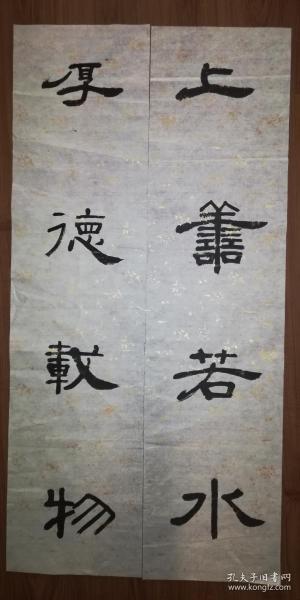 上善若水
厚德載物
孔夫子旧书网
www.kongfz.com